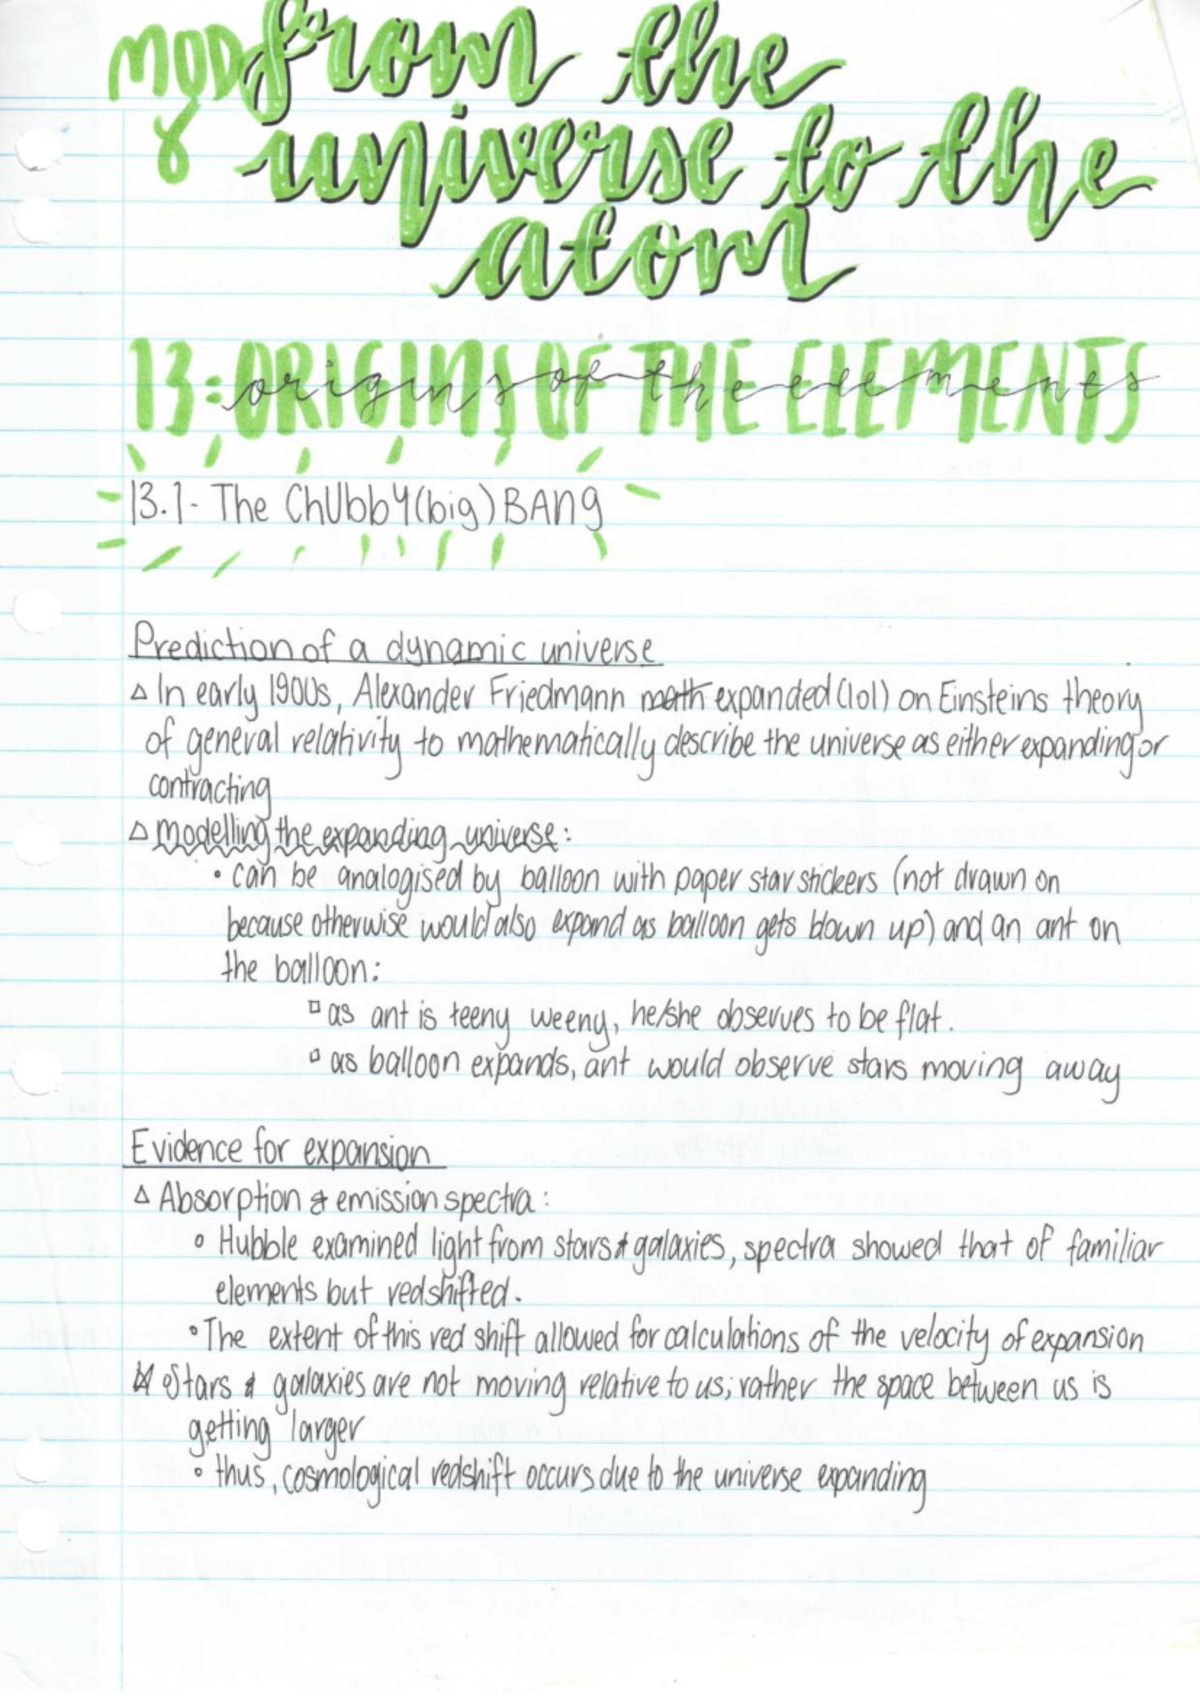 MOD from the
8 universe to the
atom
13: ORIGINS OF THE ELEMENTS
origins of the elements
13.1 - The ChUbbY (big) BANG
Prediction of a dynamic universe
△ In early 1900s, Alexander Friedmann math expanded (lol) on Einsteins theory
of general relativity to mathematically describe the universe as either expanding or
contracting
△ modelling the expanding universe:
• can be analogised by balloon with paper star stickers (not drawn on
because otherwise would also expand as balloon gets blown up) and an ant on
the balloon:
▫ as ant is teeny weeny, he/she observes to be flat.
▫ as balloon expands, ant would observe stars moving away
Evidence for expansion
△ Absorption & emission spectra:
• Hubble examined light from stars & galaxies, spectra showed that of familiar
elements but redshifted.
• The extent of this red shift allowed for calculations of the velocity of expansion
• Stars & galaxies are not moving relative to us; rather the space between us is
getting larger
• thus, cosmological redshift occurs due to the universe expanding